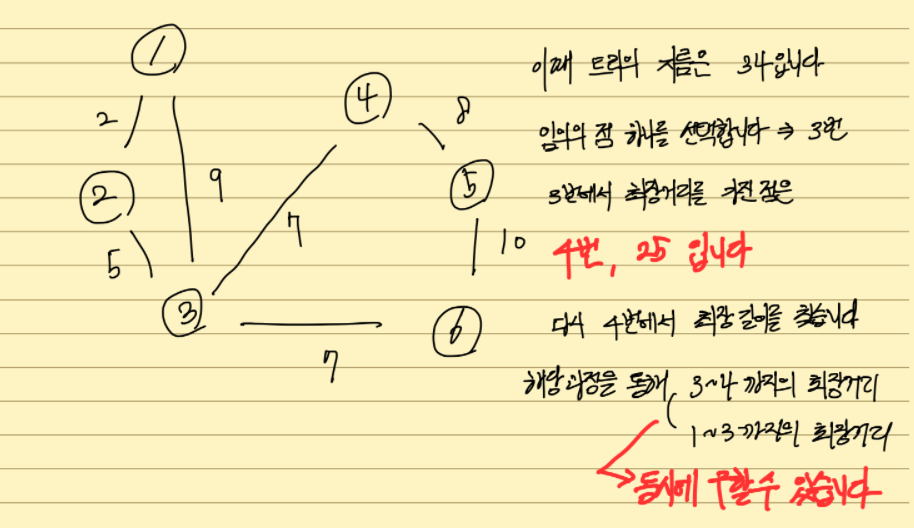 이때 트리의 지름은 34입니다
임의의 점 하나를 선택합니다 → 3번
3번에서 최장거리를 가진 점은
4번, 25 입니다
다시 4번에서 최장 길이를 찾습니다
해당 과정을 통해 3~4 까지의 최장거리
1~3 까지의 최장거리
동시에 구할 수 있습니다
1
2
4
8
2
9
5
7
5
10
3
6
7